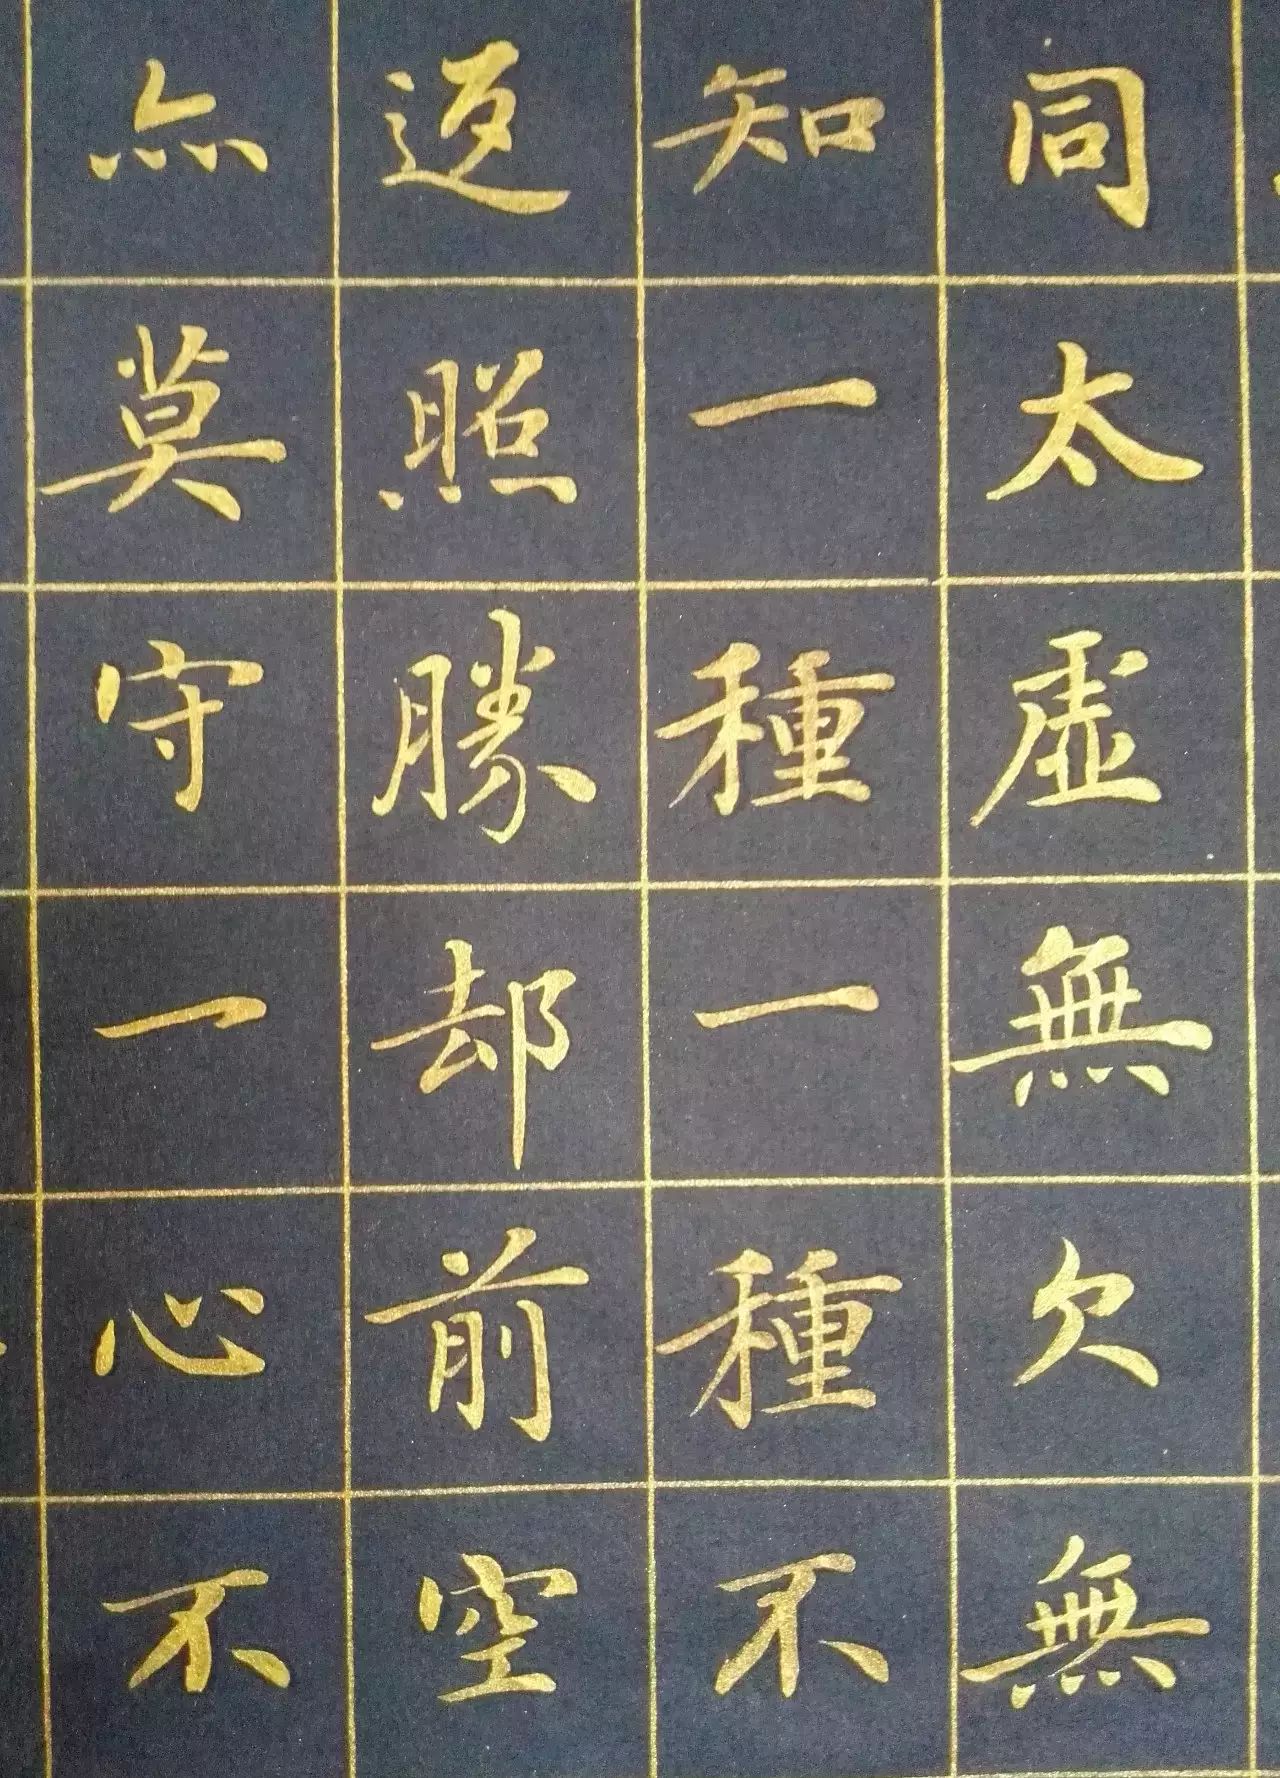 同太虚無欠無
知一種一種不
返照勝却前空
亦莫守一心不